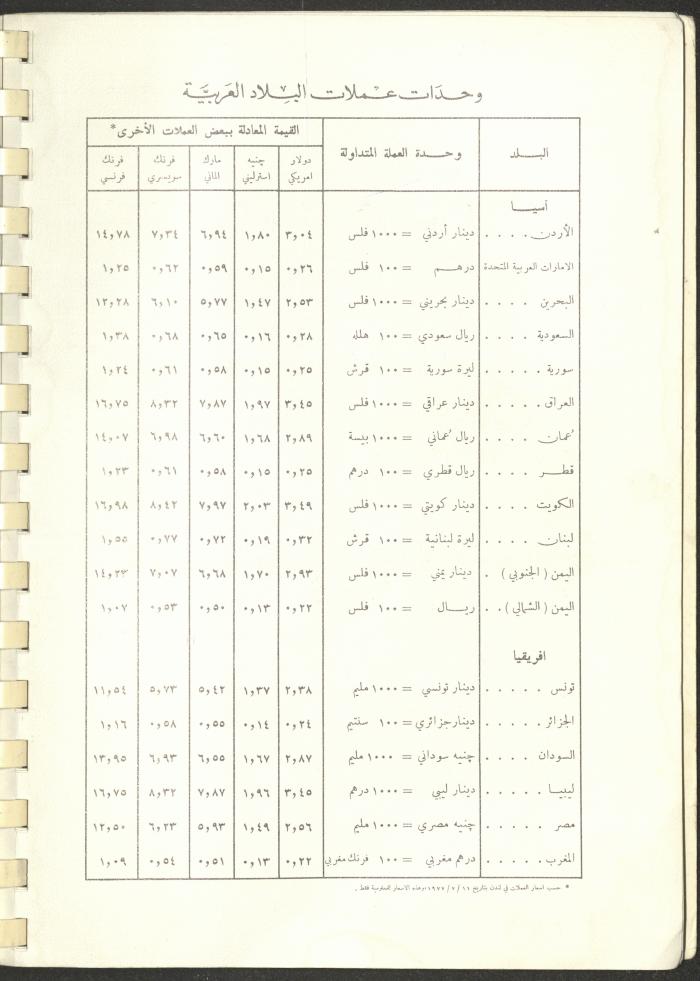 وحدات عملات البلاد العربيّة
البلد وحدة العملة المتداولة القيمة المعادلة ببعض العملات الأخرى*
دولار امريكي جنيه استرليني مارك الماني فرنك سويسري فرنك فرنسي
آسيا
الأردن . . . . دينار أردني = ١٠٠٠ فلس ٣,٠٤ ١,٨٠ ٦,٩٤ ٧,٣٤ ١٤,٧٨
الامارات العربية المتحدة درهم = ١٠٠ فلس ٠,٢٦ ٠,١٥ ٠,٥٩ ٠,٦٢ ١,٢٥
البحرين . . . . دينار بحريني = ١٠٠٠ فلس ٢,٥٣ ١,٤٧ ٥,٧٧ ٦,١٠ ١٢,٢٨
السعودية . . . . ريال سعودي = ١٠٠ هللة ٠,٢٨ ٠,١٦ ٠,٦٥ ٠,٦٨ ١,٣٨
سورية . . . . . ليرة سورية = ١٠٠ قرش ٠,٢٥ ٠,١٥ ٠,٥٨ ٠,٦١ ١,٢٤
العراق . . . . . دينار عراقي = ١٠٠٠ فلس ٣,٤٥ ١,٩٧ ٧,٨٧ ٨,٣٢ ١٦,٧٥
عُمان . . . . . ريال عُماني = ١٠٠٠ بيسة ٢,٨٩ ١,٦٨ ٦,٦٠ ٦,٩٨ ١٤,٠٧
قطر . . . . ريال قطري = ١٠٠ درهم ٠,٢٥ ٠,١٥ ٠,٥٨ ٠,٦١ ١,٢٣
الكويت . . . . دينار كويتي = ١٠٠٠ فلس ٣,٤٩ ٢,٠٣ ٧,٩٧ ٨,٤٢ ١٦,٩٨
لبنان . . . . ليرة لبنانية = ١٠٠ قرش ٠,٣٢ ٠,١٩ ٠,٧٢ ٠,٧٧ ١,٥٥
اليمن ( الجنوبي ) . دينار يمني = ١٠٠٠ فلس ٢,٩٣ ١,٧٠ ٦,٦٨ ٧,٠٧ ١٤,٢٣
اليمن ( الشمالي ) . . ريال = ١٠٠ فلس ٠,٢٢ ٠,١٣ ٠,٥٠ ٠,٥٣ ١,٠٧
افريقيا
تونس . . . . . دينار تونسي = ١٠٠٠ مليم ٢,٣٨ ١,٣٧ ٥,٤٢ ٥,٧٣ ١١,٥٤
الجزائر . . . . . دينار جزائري = ١٠٠ سنتيم ٠,٢٤ ٠,١٤ ٠,٥٥ ٠,٥٨ ١,١٦
السودان . . . . جنيه سوداني = ١٠٠٠ مليم ٢,٨٧ ١,٦٧ ٦,٥٥ ٦,٩٣ ١٣,٩٥
ليبيا . . . . . دينار ليبي = ١٠٠٠ درهم ٣,٤٥ ١,٩٦ ٧,٨٧ ٨,٣٢ ١٦,٧٥
مصر . . . . . جنيه مصري = ١٠٠٠ مليم ٢,٥٦ ١,٤٩ ٥,٩٣ ٦,٢٣ ١٢,٥٠
المغرب . . . . . درهم مغربي = ١٠٠ فرنك مغربي ٠,٢٢ ٠,١٣ ٠,٥١ ٠,٥٤ ١,٠٩
* حسب اسعار العملات في لندن بتاريخ ١١ / ٧ / ١٩٧٧ وهذه الاسعار للمعلومية فقط .